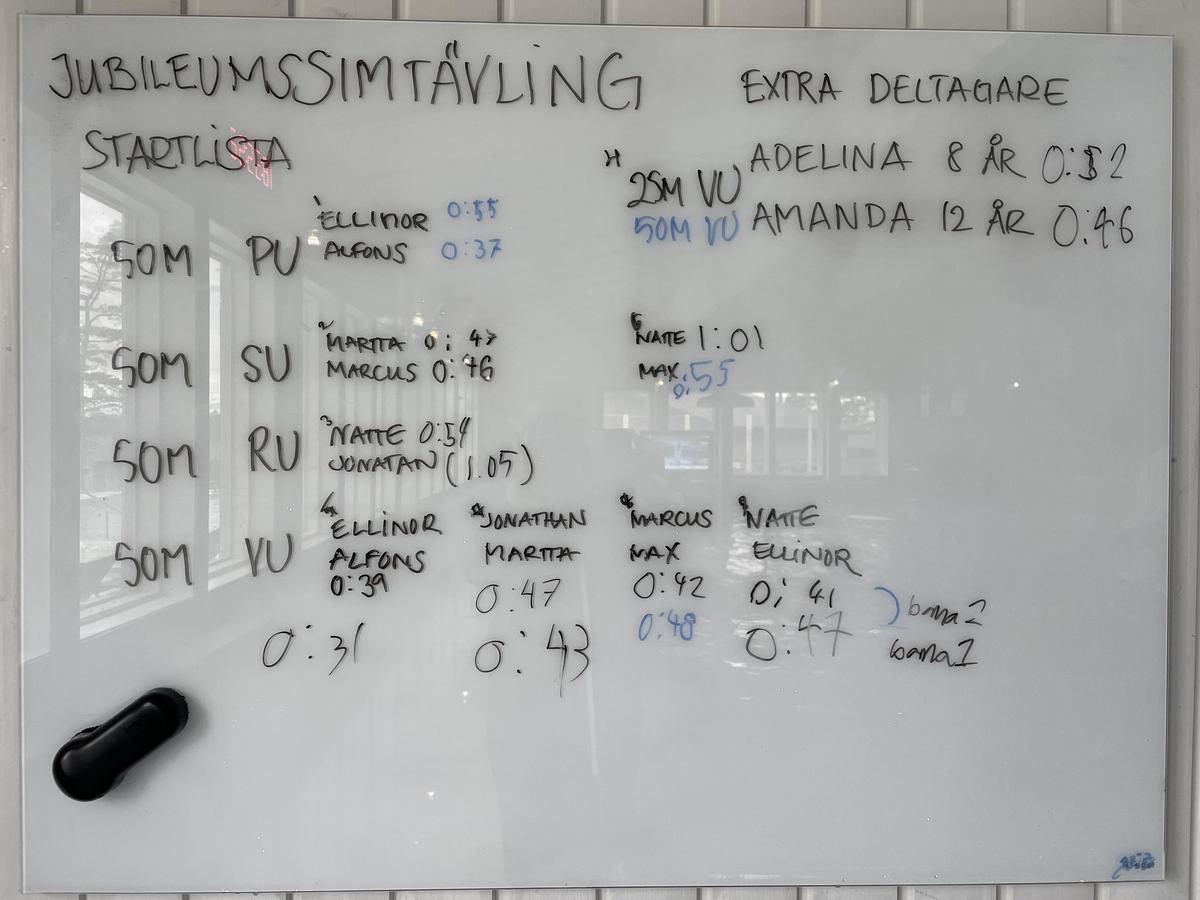 JUBILEUMSSIMTÄVLING
STARTLISTA
50M PU
ELLINOR 0:55
ALFONS 0:37
EXTRA DELTAGARE
25M VU ADELINA 8 ÅR 0:52
50M VU AMANDA 12 ÅR 0:46
50M SU
MARTTA 0:47
MARCUS 0:46
NATTE 1:01
MAX 0:55
50M RU
NATTE 0:54
JONATAN (1.05)
50M VU
ELLINOR
ALFONS
0:39
0:31
JONATHAN
MARTTA
0:47
0:43
MARCUS
MAX
0:42
0:48
NATTE
ELLINOR
0:41 bana 2
0:47 bana 1